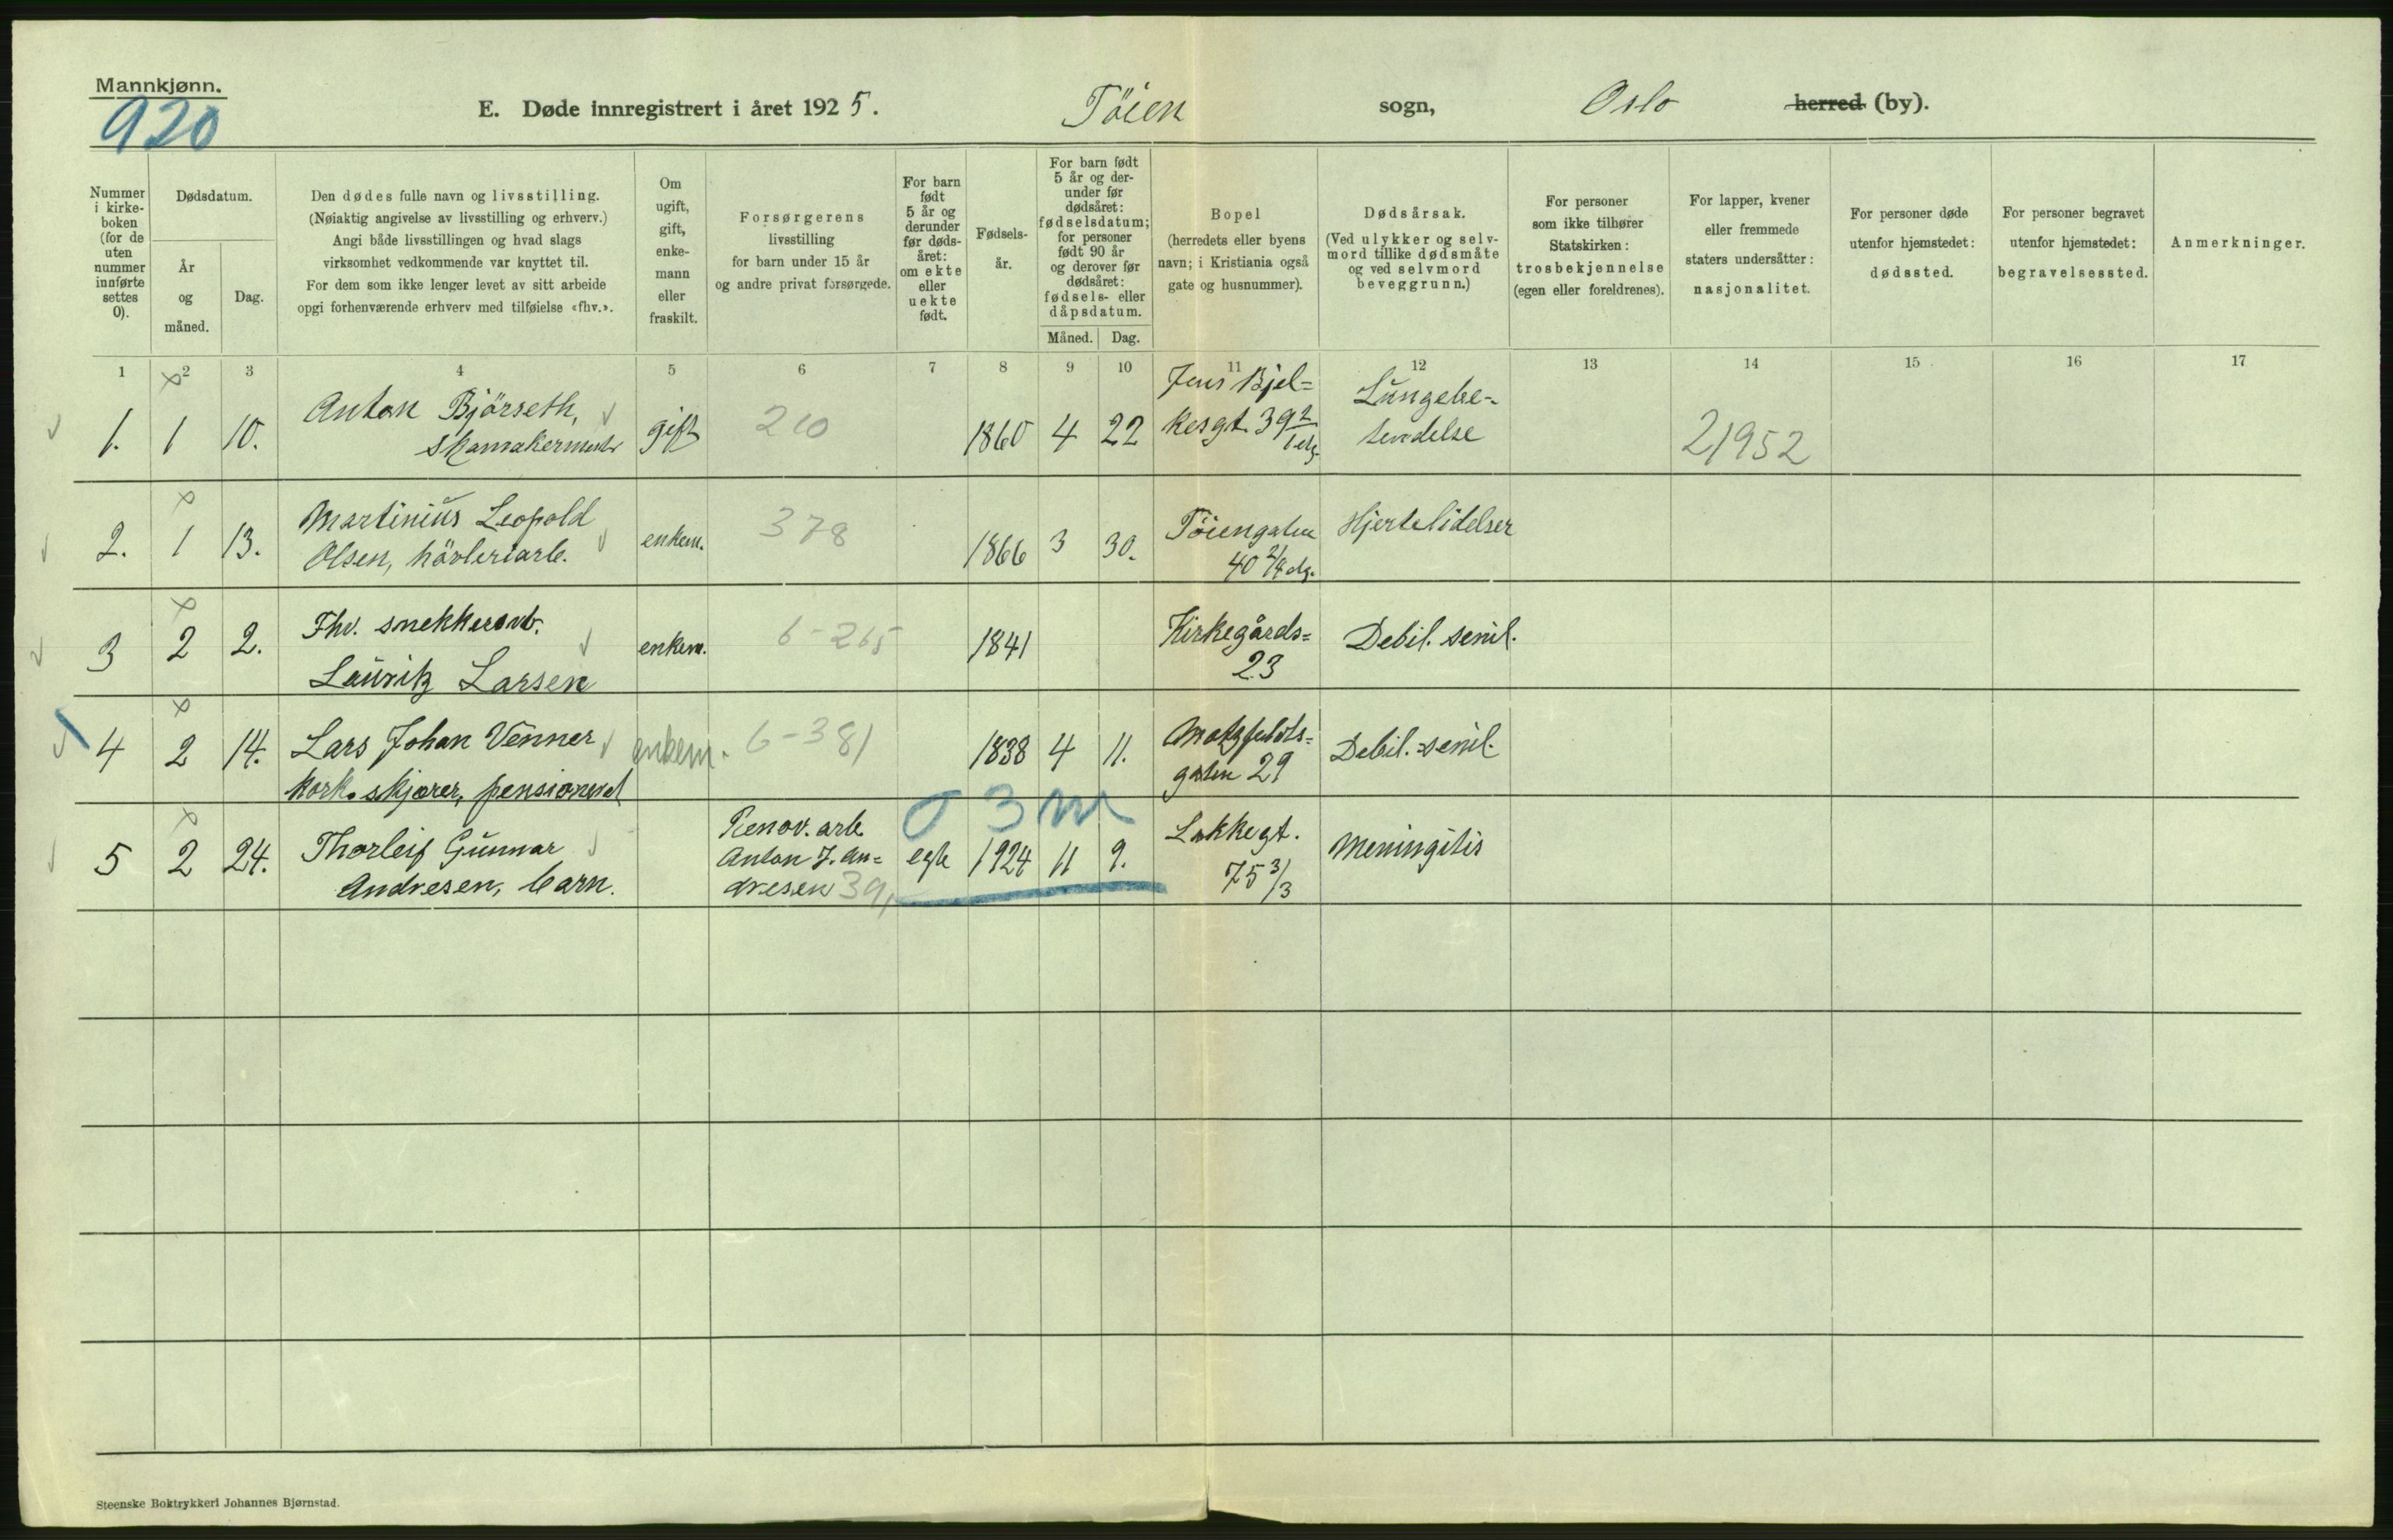 Mannkjønn.
920
E. Døde innregistrert i året 1925. Töien sogn, Oslo herred (by).
Nummer i kirke- boken (for de uten nummer innførte settes 0).
Dødsdatum.
År og måned.
Dag.
Den dødes fulle navn og livsstilling.
(Nøiaktig angivelse av livsstilling og erhverv.)
Angi både livsstillingen og hvad slags
virksomhet vedkommende var knyttet til.
For dem som ikke lenger levet av sitt arbeide
opgi forhenværende erhverv med tilføielse «fhv.».
Om ugift, gift, enke- mann eller fraskilt.
Forsørgerens
livsstilling
for barn under 15 år
og andre privat forsørgede.
For barn født 5 år og derunder før døds- året: om ekte eller uekte født.
Fødsels- år.
For barn født 5 år og der- under før dødsåret: fødselsdatum; for personer født 90 år og derover før dødsåret: fødsels- eller dåpsdatum.
Måned. Dag.
Bopel
(herredets eller byens
navn; i Kristiania også
gate og husnummer).
Dødsårsak.
(Ved ulykker og selv-
mord tillike dødsmåte
og ved selvmord
beveggrunn.)
For personer
som ikke tilhører
Statskirken:
trosbekjennelse
(egen eller foreldrenes).
For lapper, kvener
eller fremmede
staters undersåtter:
nasjonalitet.
For personer døde
utenfor hjemstedet:
dødssted.
For personer begravet
utenfor hjemstedet:
begravelsessted.
Anmerkninger.
1 2 3 4 5 6 7 8 9 10 11 12 13 14 15 16 17
1. 1 10. Anton Björseth, gift 210 1860 4 22 Jens Bjel= Lungebe-
skomakermester kesgt. 39 2/1 elg. tendelse 21952
2. 1 13. Martinius Leopold enkem. 378 1866 3 30. Töiengaten Hjertelidelser
Olsen, hövleriarb. 40 2/4 elg.
3 2 2. Fhv. snekkerarb. enkem. 6-265 1841 Kirkegårds= Debil. senil.
Lauritz Larsen 23
4 2 14. Lars Johan Venner enkem. 6-381 1838 4 11. Motzfeldts= Debil. senil.
korkskjærer, pensioneret gaten 29
03m
5 2 24. Thorleif Gunnar Renov. arb. egte 1924 11 9. Lakkegt. Meningitis
Andresen, barn. Anton J. An= 75 3/3
dresen 39,
Steenske Boktrykkeri Johannes Bjørnstad.